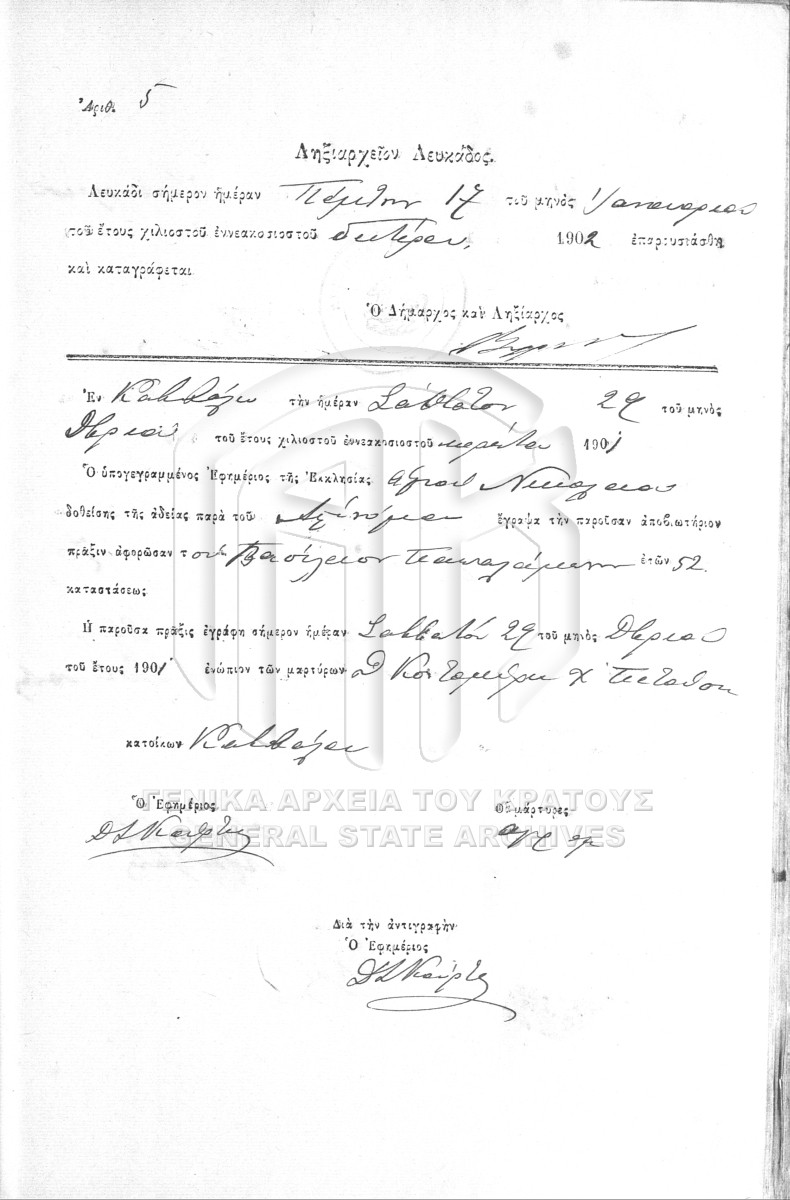 Ἀριθ. 5
Ληξιαρχεῖον Λευκάδος.
Λευκάδι σήμερον ἡμέραν Πέμπτην 17 τοῦ μηνὸς Ἰανουαρίου
τοῦ ἔτους χιλιοστοῦ ἐννεακοσιοστοῦ δευτέρου, 1902 ἐπαρουσιάσθη
καὶ καταγράφεται
Ὁ Δήμαρχος καὶ Ληξίαρχος
Ἐν τὴν ἡμέραν Σάββατον 29 τοῦ μηνὸς
Δβρίου τοῦ ἔτους χιλιοστοῦ ἐννεακοσιοστοῦ πρώτου 1901
Ὁ ὑπογεγραμμένος Ἐφημέριος τῆς Ἐκκλησίας ἁγίου Νικολάου
δοθείσης τῆς ἀδείας παρὰ τοῦ Ἀστυνόμου ἔγραψα τὴν παροῦσαν ἀποβιωτήριον
πρᾶξιν ἀφορῶσαν τὸν Βασίλειον ἐτῶν 52
καταστάσεως
Ἡ παροῦσα πρᾶξις ἐγράφη σήμερον ἡμέραν Σάββατον 29 τοῦ μηνὸς Δβρίου
τοῦ ἔτους 1901 ἐνώπιον τῶν μαρτύρων
κατοίκων
ΓΕΝΙΚΑ ΑΡΧΕΙΑ ΤΟΥ ΚΡΑΤΟΥΣ
GENERAL STATE ARCHIVES
Ὁ Ἐφημέριος Οἱ μάρτυρες
Διὰ τὴν ἀντιγραφὴν
Ὁ Ἐφημέριος